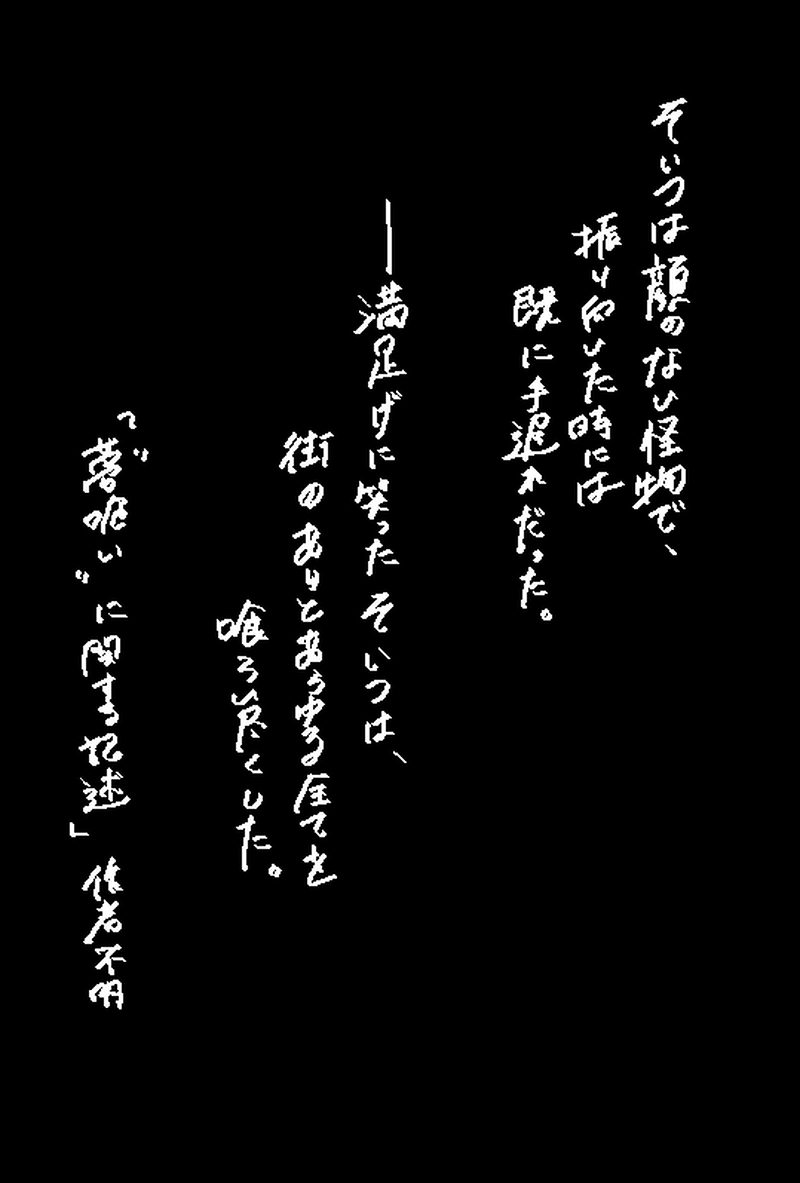 そいつは顔のない怪物で、
振り向いた時には
既に手遅れだった。
――満足げに笑ったそいつは、
街のありとあらゆる全てを
喰らい尽くした。
「“夢喰い”に関する記述」作者不明